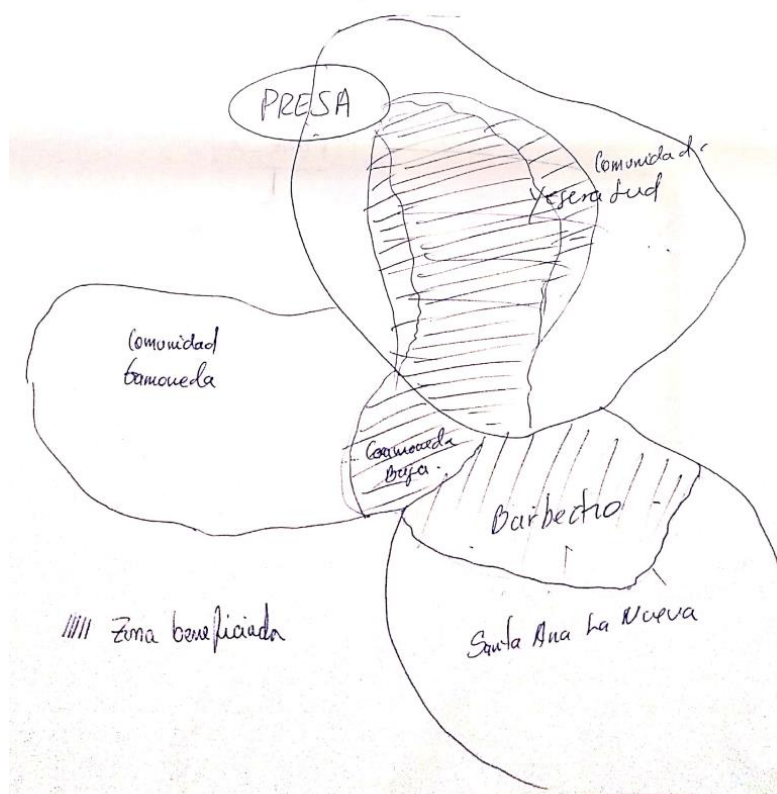 PRESA
Comunidad
Yesera Sud
Comunidad
Gamoneda
Gamoneda
Baja.
Barbecho
Santa Ana La Nueva
Zona beneficiada